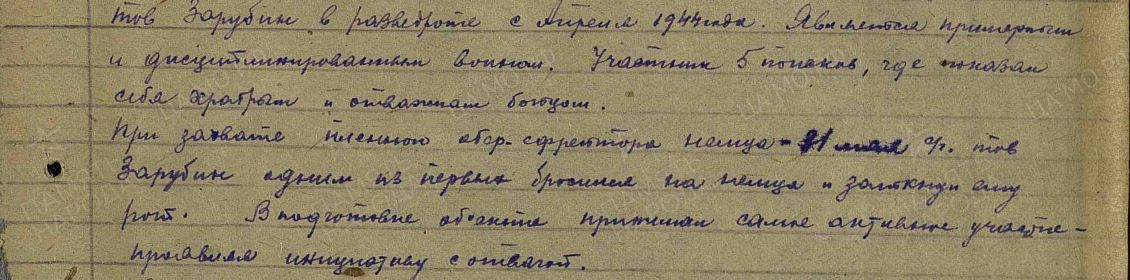 тов Зарубин в разведроте с апреля 1944 года. Является примерным
и дисциплинированным воином. Участник 5 поисков, где показал
себя храбрым и отважным бойцом.
При захвате пленного обер-ефрейтора немца - 21 мая с/г. тов
Зарубин одним из первых бросился на немца и заткнул ему
рот. В подготовке об'екта принимал самое активное участие -
проявляя инициативу с отвагой.